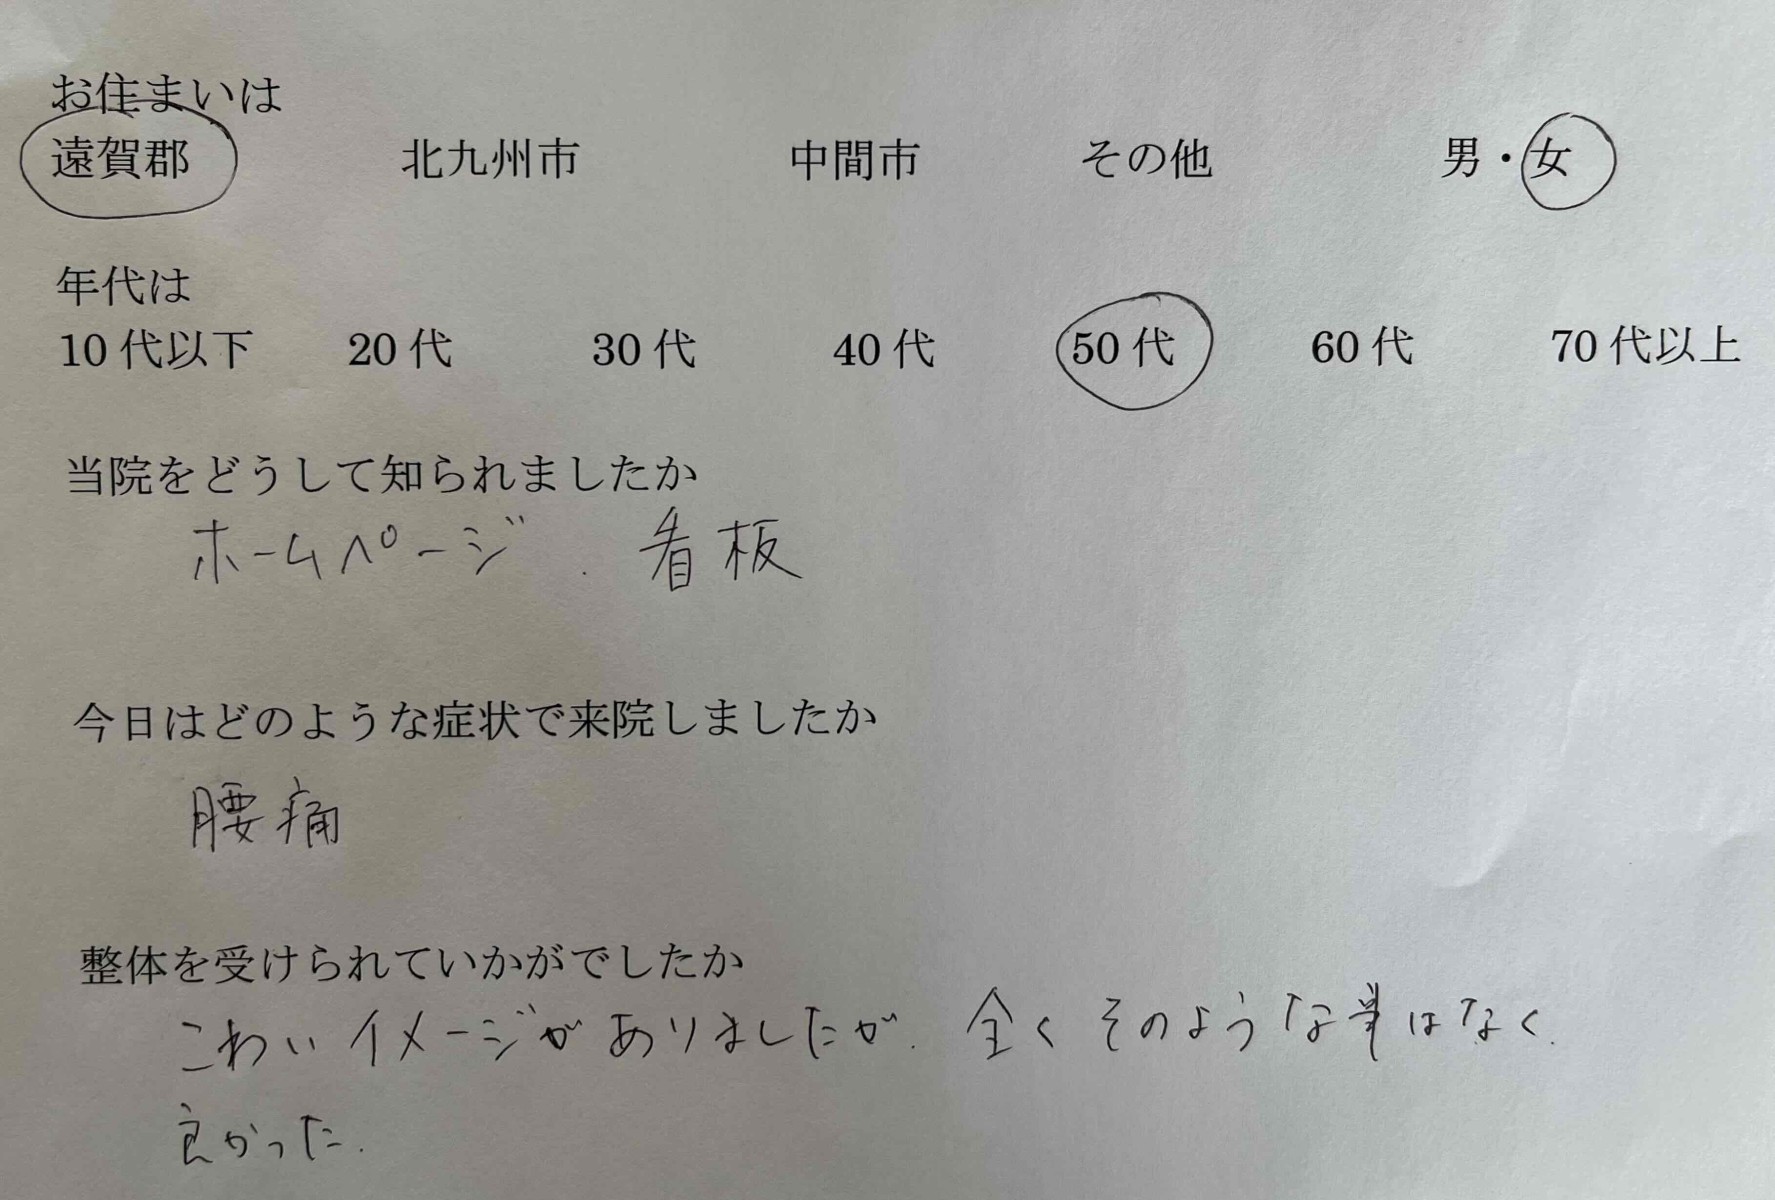 お住まいは
遠賀郡 北九州市 中間市 その他 男・女
年代は
10代以下 20代 30代 40代 50代 60代 70代以上
当院をどうして知られましたか
ホームページ. 看板
今日はどのような症状で来院しましたか
腰痛
整体を受けられていかがでしたか
こわいイメージがありましたが. 全くそのような事はなく.
良かった.